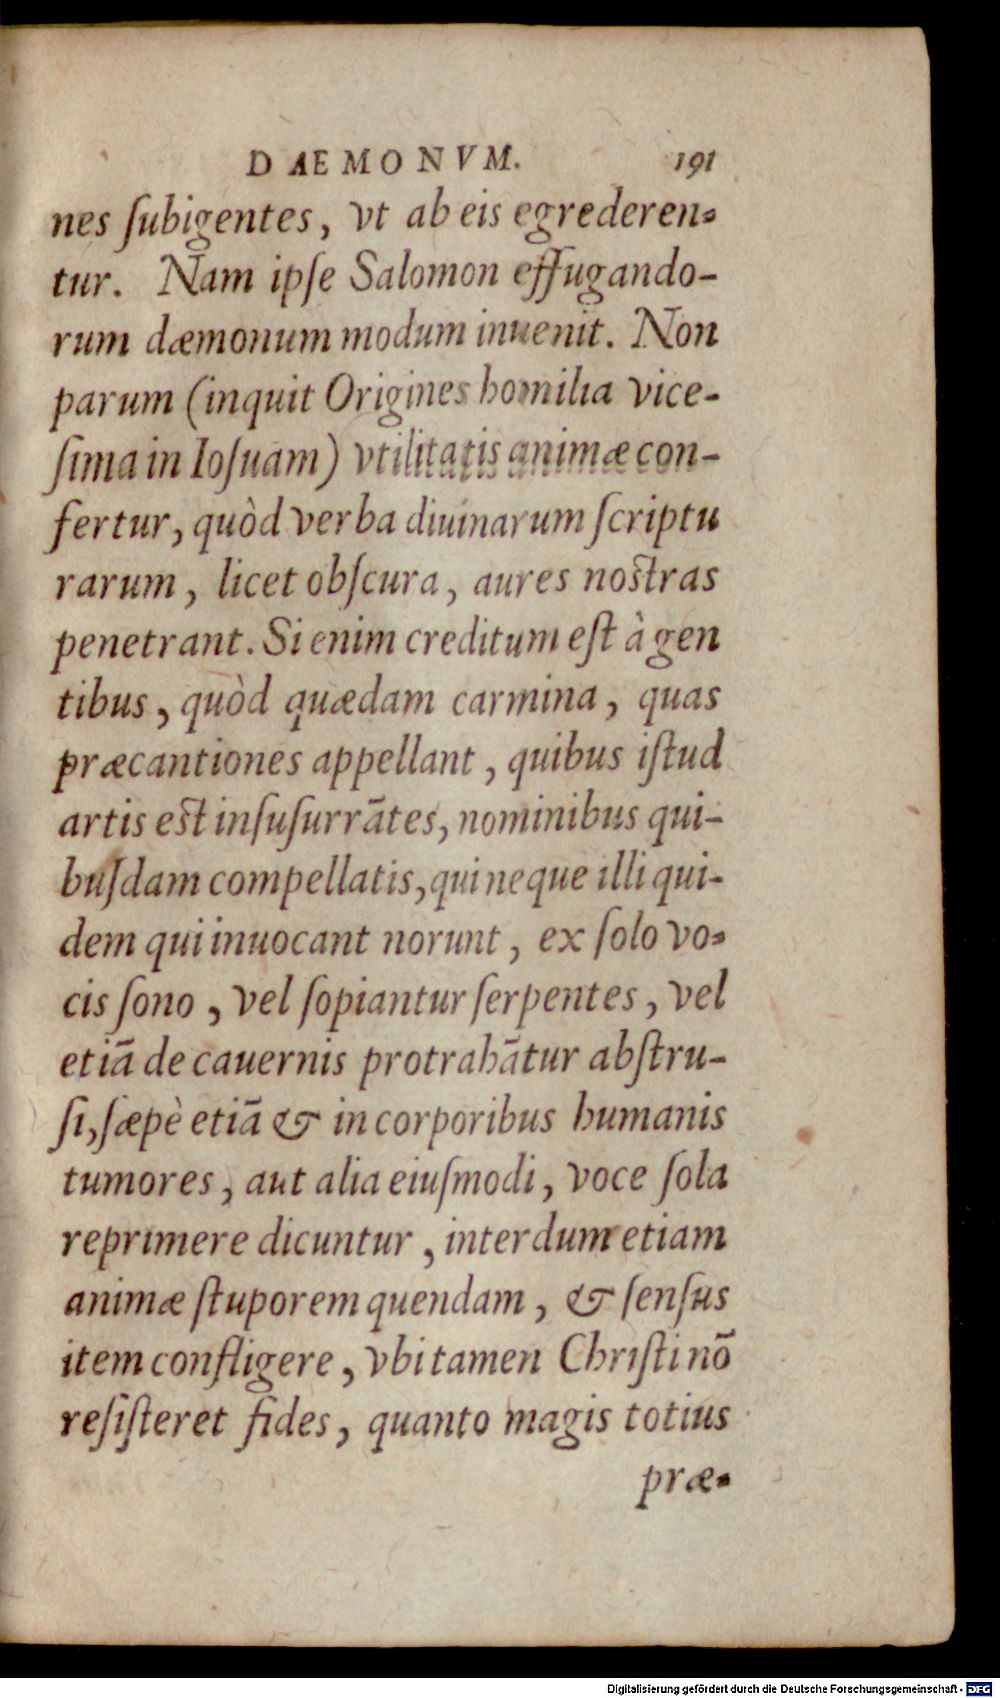 DAEMONVM. 191
nes ſubigentes, vt ab eis egrederen-
tur. Nam ipſe Salomon effugando-
rum dæmonum modum inuenit. Non
parum (inquit Origines homilia vice-
ſima in Ioſuam) vtilitatis animæ con-
fertur, quòd verba diuinarum ſcriptu
rarum, licet obſcura, aures noſtras
penetrant. Si enim creditum eſt à gen
tibus, quòd quædam carmina, quas
præcantiones appellant, quibus iſtud
artis eſt inſuſurrātes, nominibus qui-
buſdam compellatis, qui neque illi qui-
dem qui inuocant norunt, ex ſolo vo-
cis ſono, vel ſopiantur ſerpentes, vel
etiā de cauernis protrahātur abſtru-
ſi, ſæpè etiā & in corporibus humanis
tumores, aut alia eiuſmodi, voce ſola
reprimere dicuntur, interdum etiam
animæ ſtuporem quendam, & ſenſus
item confligere, vbi tamen Chriſti nō
reſiſteret fides, quanto magis totius
præ-
Digitalisierung gefördert durch die Deutsche Forschungsgemeinschaft - DFG